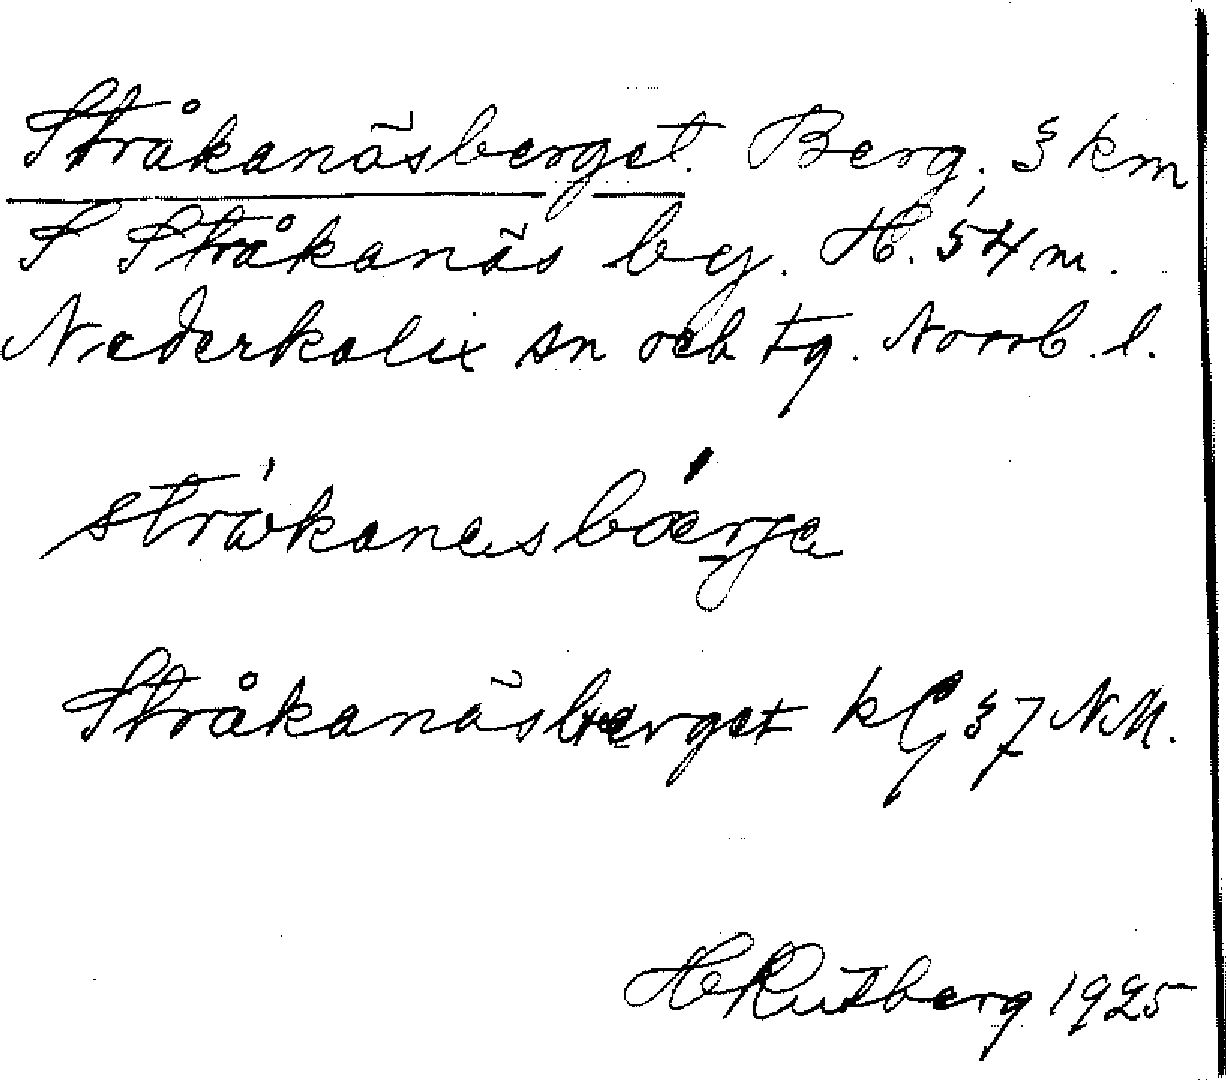 Stråkanäsberget. Berg. 3 km
S Stråkanäs by. H. 54 m.
Nederkalix sn och tg. Norrb. l.
Stråkanäsberget kG 37 NM.
H Rutberg 1925